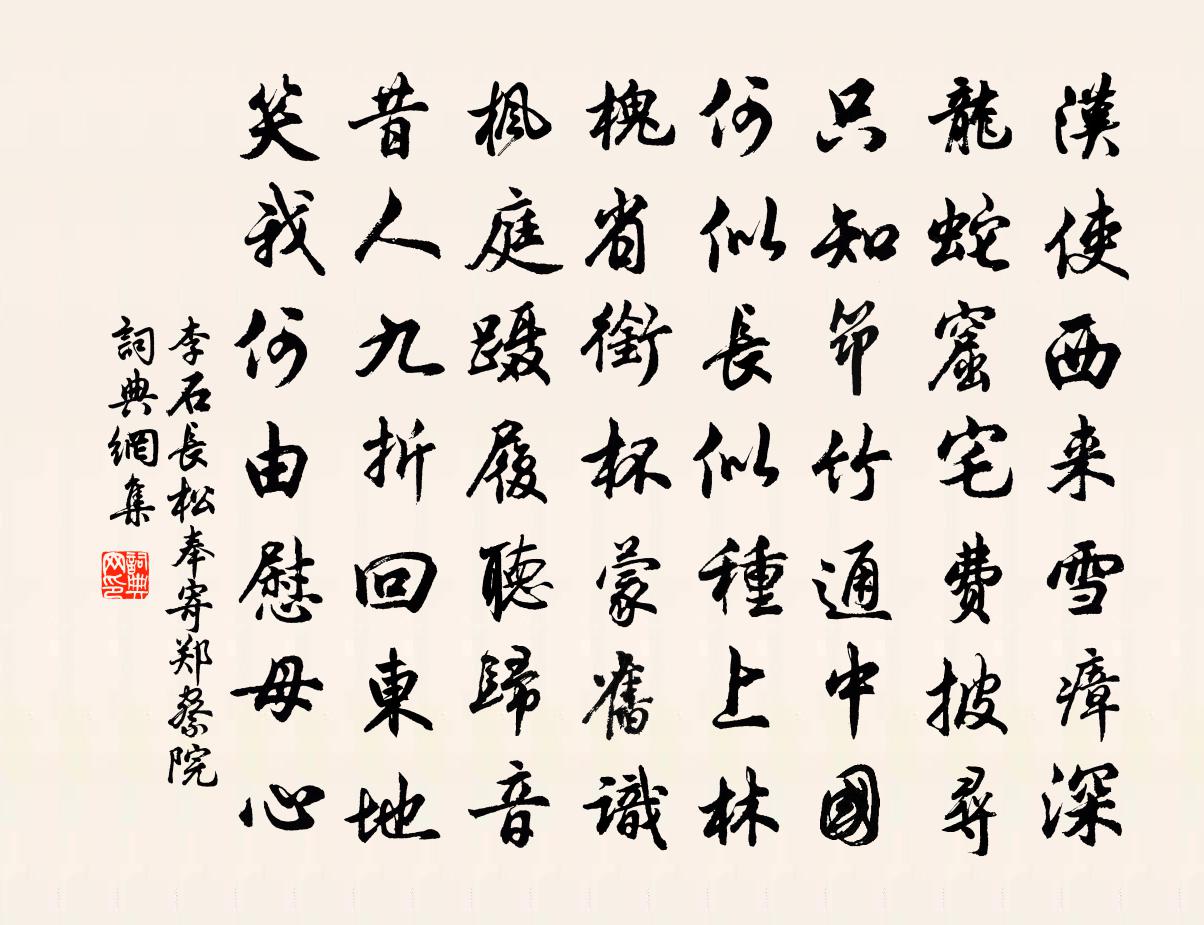 漢使西来雪瘴深
龍蛇窟宅費披尋
只知笻竹通中國
何似長似種上林
槐省銜杯蒙舊識
楓庭躡履聽歸音
昔人九折回東地
笑我何由慰母心
李石長松奉寄郑察院
詞典網集
詞典网印